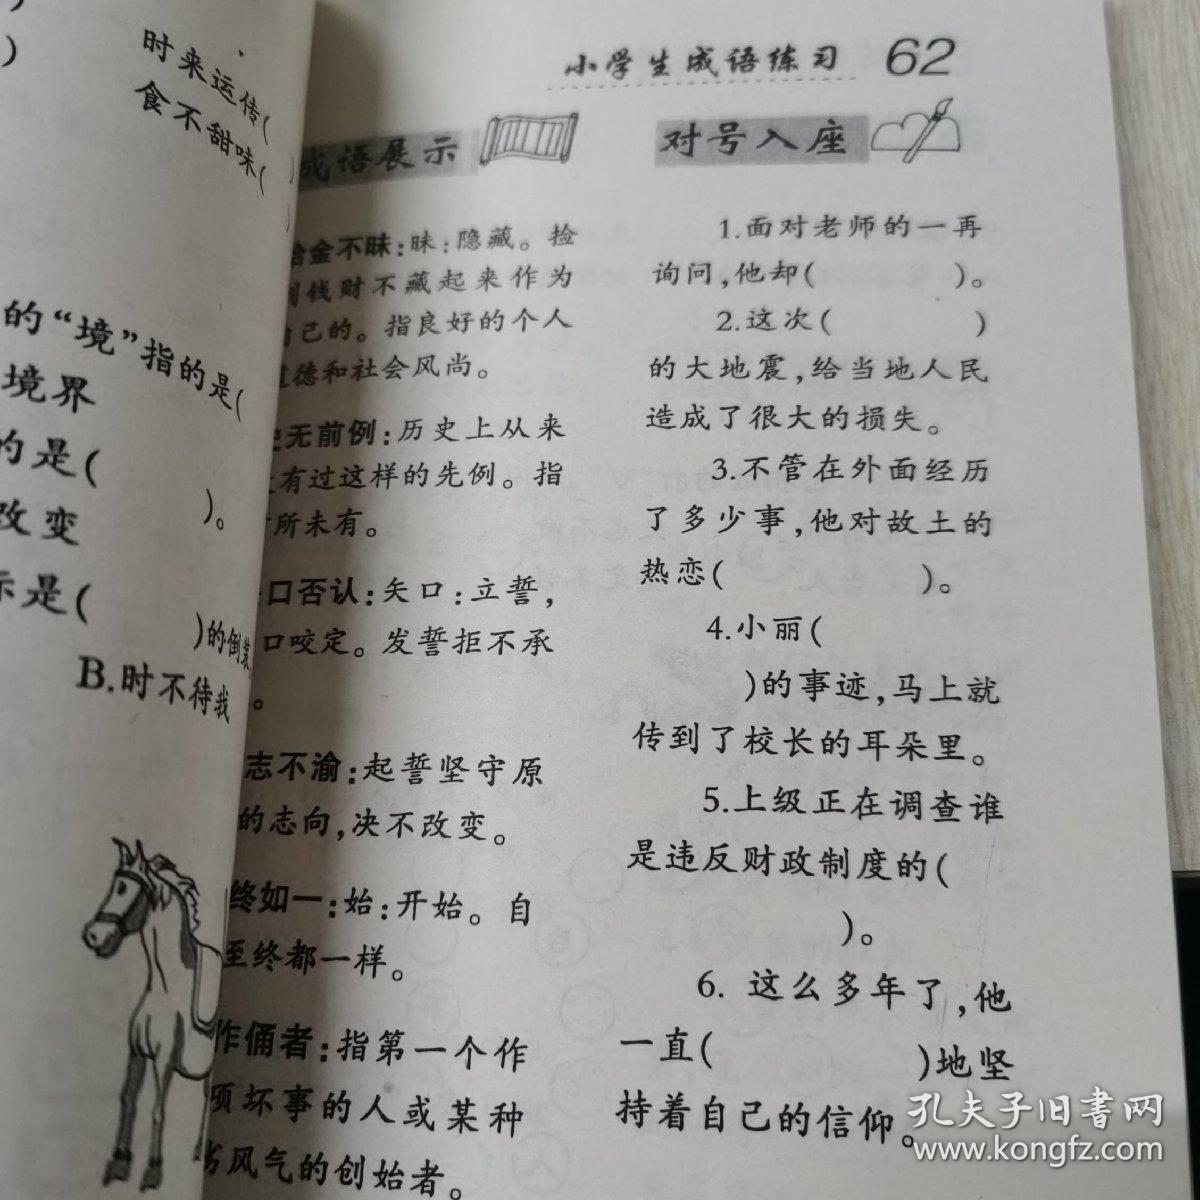 )
)
时来运传(
食不甜味(
的“境”指的是(
境界
的是(
)。
改变
示是(
)的倒装
B.时不待我
小学生成语练习 62
成语展示
)
)
拾金不昧:昧:隐藏。捡
到钱财不藏起来作为
自己的。指良好的个人
道德和社会风尚。
史无前例:历史上从来
没有过这样的先例。指
前所未有。
口否认:矢口:立誓,
口咬定。发誓拒不承
。
志不渝:起誓坚守原
的志向,决不改变。
终如一:始:开始。自
至终都一样。
作俑者:指第一个作
项坏事的人或某种
风气的创始者。
对号入座
1.面对老师的一再
询问,他却( )。
2.这次( )
的大地震,给当地人民
造成了很大的损失。
3.不管在外面经历
了多少事,他对故土的
热恋( )。
4.小丽(
)的事迹,马上就
传到了校长的耳朵里。
5.上级正在调查谁
是违反财政制度的(
)。
6. 这么多年了,他
一直( )地坚
持着自己的信仰。
孔夫子旧书网
www.kongfz.com